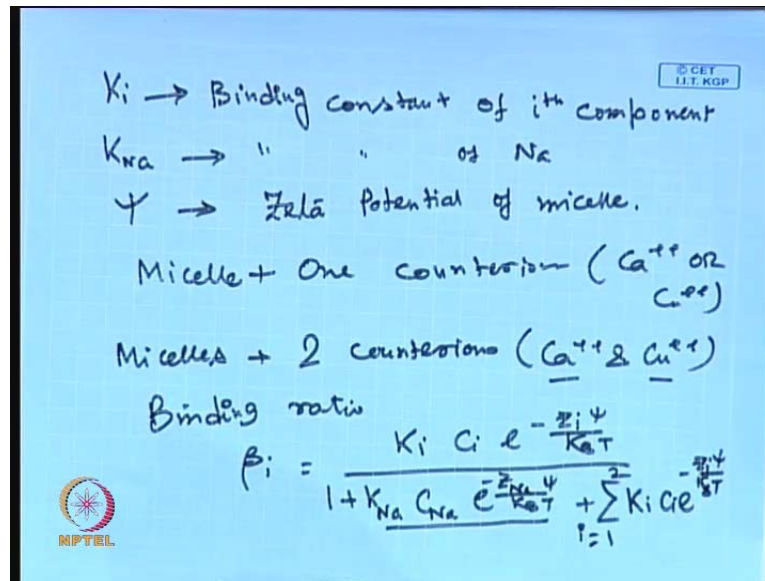 © CET
I.I.T. KGP
Ki → Binding constant of ith component
KNa → " " of Na
Ψ → Zeta Potential of micelle.
Micelle + One counterion (Ca++ OR
Cu++)
Micelles + 2 counterions (Ca++ & Cu++)
Binding ratio
βi = Ki Ci e^(-Zi Ψ/KB T) / (1 + KNa CNa e^(-ZNa Ψ/KB T) + Σ(i=1 to 2) Ki Ci e^(-Zi Ψ/KB T))
NPTEL